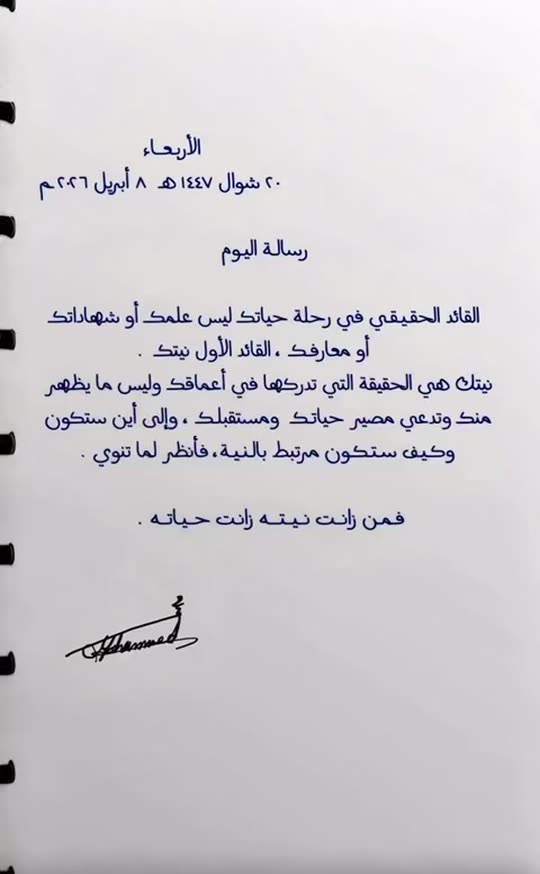 الأربعاء
٢٠ شوال ١٤٤٧ هـ ٨ أبريل ٢٠٢٦ م
رسالة اليوم
القائد الحقيقي في رحلة حياتك ليس علمك أو شهاداتك
أو معارفك ، القائد الأول نيتك .
نيتك هي الحقيقة التي تدركها في أعماقك وليس ما يظهر
منك وتدعي مصير حياتك ومستقبلك ، وإلى أين ستكون
وكيف ستكون مرتبط بالنية، فأنظر لما تنوي .
فمن زانت نيته زانت حياته .
Mohammed